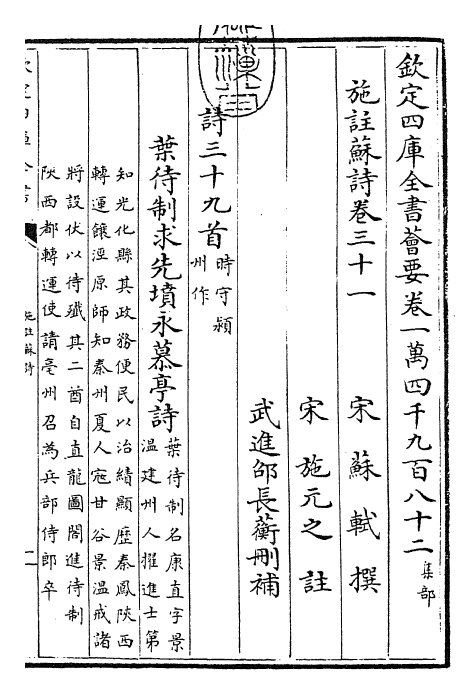 欽定四庫全書薈要卷一萬四千九百八十二集部
施註蘇詩卷三十一
宋蘇軾撰
宋施元之註
武進邵長蘅刪補
詩三十九首時守潁
州作
葉待制求先墳永慕亭詩葉待制名康直字景
温建州人擢進士第
知光化縣其政務便民以治績顯歷秦鳳陜西
轉運饟涇原師知秦州夏人宼甘谷景温戒諸
將設伏以待殲其二酋自直龍圖閣進待制
陜西都轉運使請亳州召為兵部侍郎卒
施註蘇詩
一